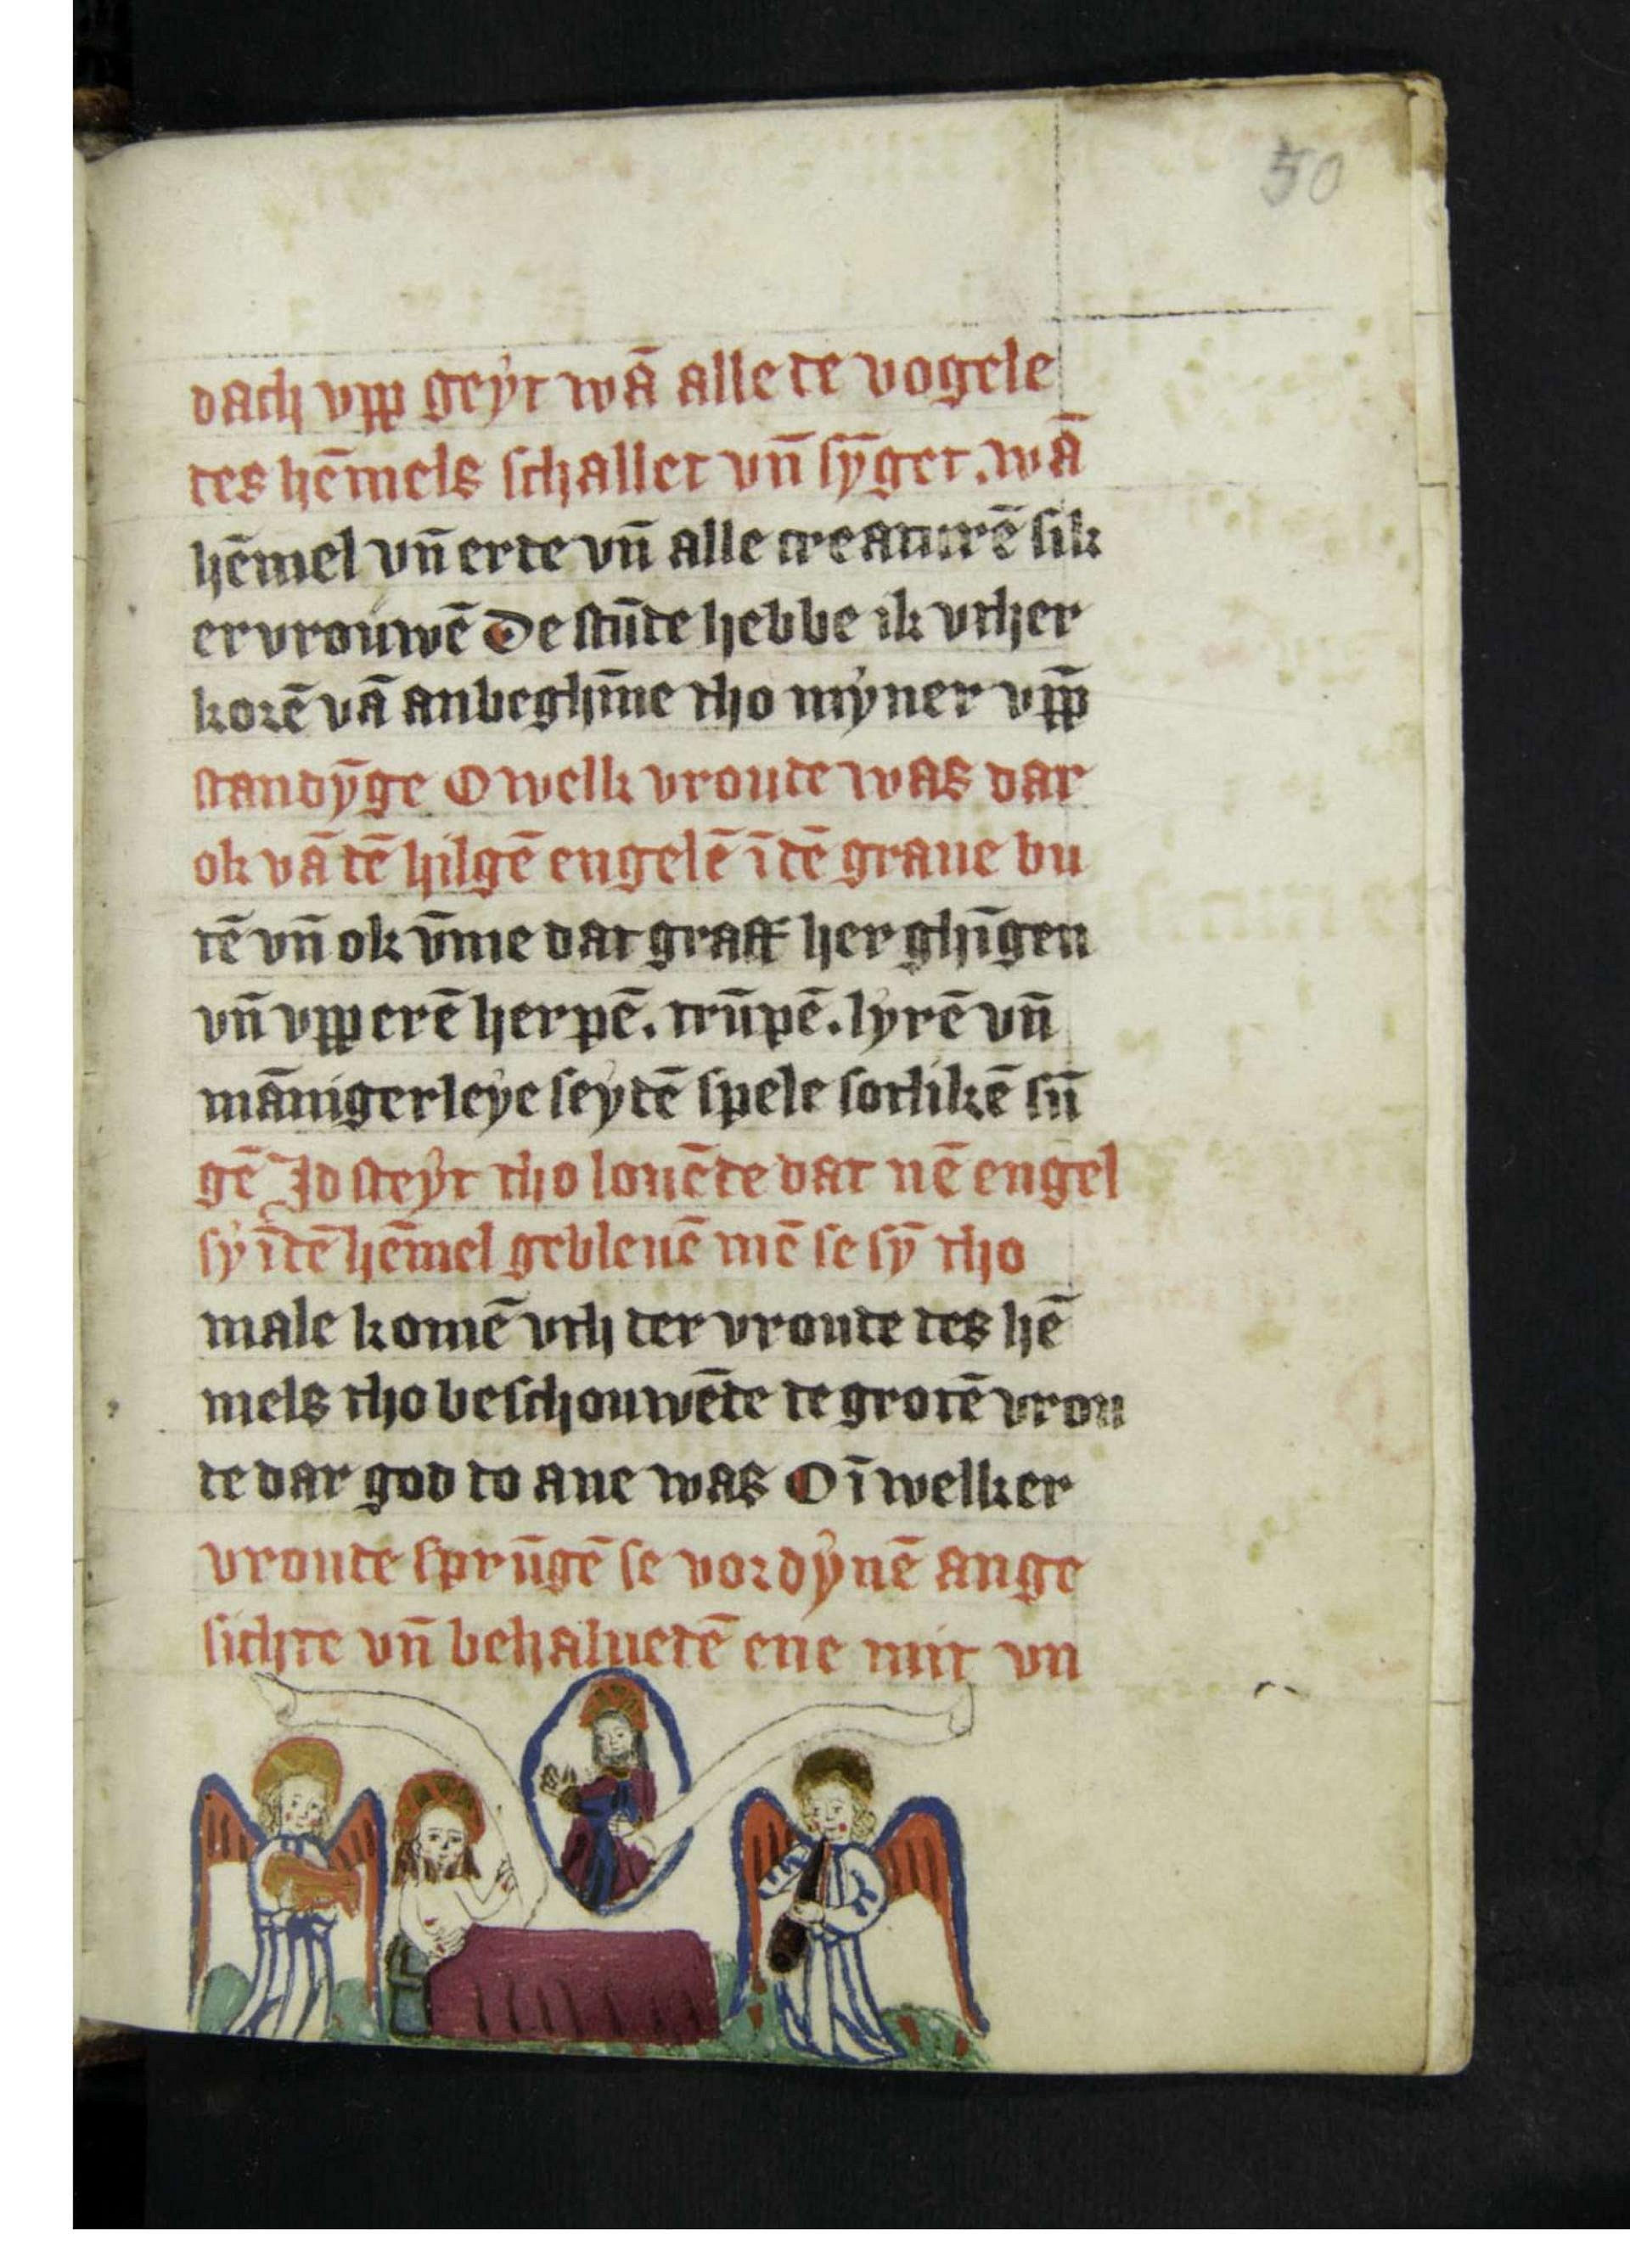 50
dach vpp geyt wā alle de vogele
des hēmels schallet vn̄ sȳget. wā
hēmel vn̄ erde vn̄ alle creaturē sik
ervrouwē De stūde hebbe ik vther
korē vā anbeghīne tho myner vpp
standȳge O welk vroude was dar
ok vā dē hilgē engelē ī dē graue bu
tē vn̄ ok v̄me dat graff her ghīgen
vn̄ vpp erē herpē. trūpē. lyrē vn̄
mānigerleye seydē spele sotlikē sū
gē Jd steyt tho louēde dat nē engel
sy ī dē hēmel gebleuē mē se sȳ tho
male komē vth der vroude des hē
mels tho beschouwēde de grotē vrou
de dar god to aue was O ī welker
vroude sprūgē se vor dynē ange
sichte vn̄ behaluedē ene mit vn